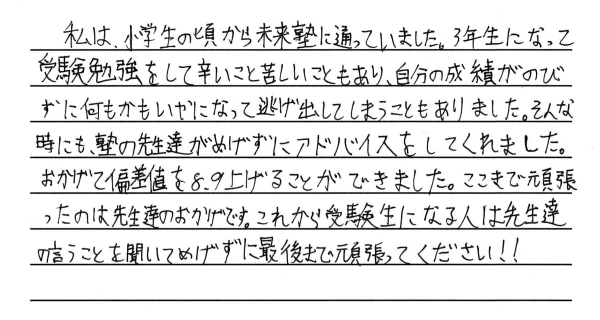 私は、小学生の頃から未来塾に通っていました。3年生になって
受験勉強をして辛いこと苦しいこともあり、自分の成績がのび
ずに何もかもいやになって逃げ出してしまうこともありました。そんな
時にも、塾の先生達がめげずにアドバイスをしてくれました。
おかげで偏差値を8、9上げることができました。ここまで頑張
ったのは先生達のおかげです。これから受験生になる人は先生達
の言うことを聞いてめげずに最後まで頑張ってください!!